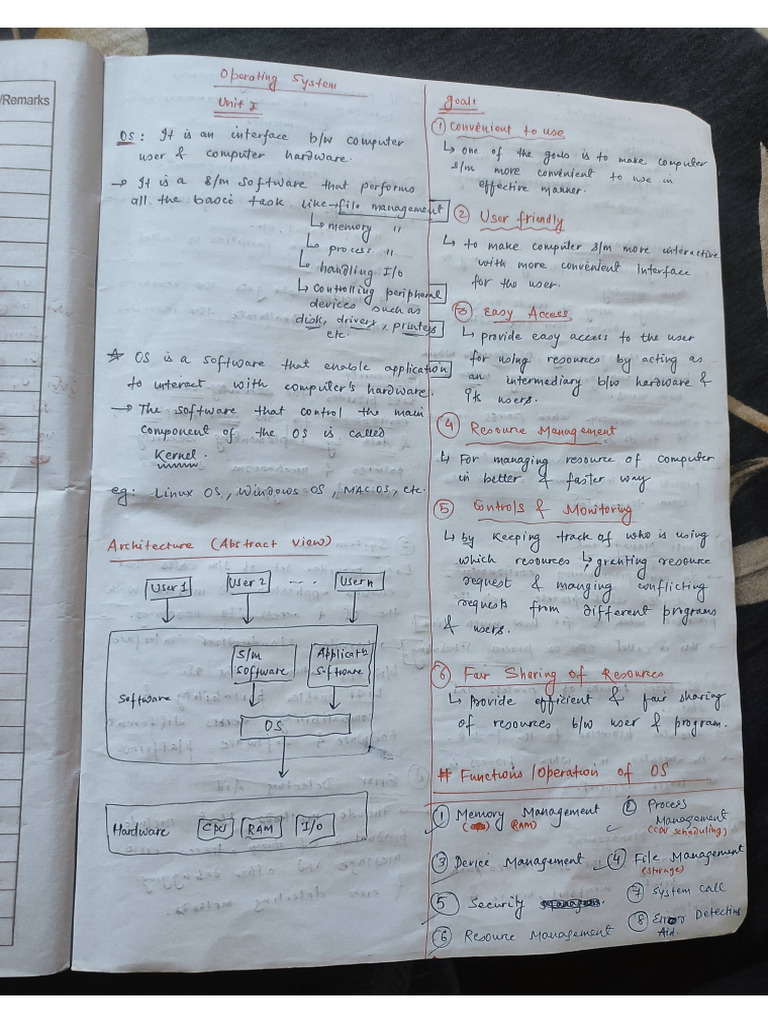 /Remarks
Operating System
Unit I
OS: It is an interface b/w computer
user & computer hardware.
→ It is a s/m software that performs
all the basci task like → file management
↳ memory "
↳ process "
↳ handling I/O
↳ controlling peripheral
devices such as
disk, drivers, printers
etc.
☆ OS is a software that enable application
to interact with computer's hardware.
→ The software that control the main
component of the OS is called
Kernel.
eg: Linux OS, Windows OS, MAC OS, etc.
Architecture (Abstract view)
User 1 User 2 ... User n
S/m Software
Applicatn Software
Software
OS
Hardware CPU RAM I/O
goal:
① Convenient to use
↳ one of the goals is to make computer
s/m more convenient to use in
effective manner.
② User friendly
↳ to make computer s/m more interactive
with more convenient interface
for the user.
③ Easy Access
↳ provide easy access to the user
for using resources by acting as
an intermediary b/w hardware &
its users.
④ Resource Management
↳ For managing resource of computer
in better & faster way
⑤ Controls & Monitoring
↳ by keeping track of who is using
which resources ↳ granting resource
request & manging conflicting
requests from different programs
& users.
⑥ Fair Sharing of Resources
↳ provide efficient & fair sharing
of resources b/w user & program.
# Functions/Operation of OS
① Memory Management (RAM)
② Process Management (CPU scheduling)
③ Device Management
④ File Management (storage)
⑤ Security
⑦ System call
⑥ Resource Management
⑧ Error Detecting Aid.